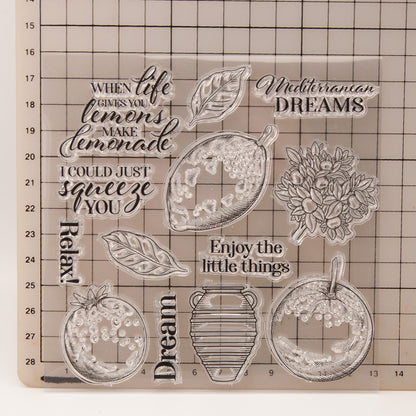 14
15
16
17
18
19
20
21
22
23
24
25
26
27
28
WHEN life
GIVES YOU
lemons
MAKE
lemonade
Mediterranean
DREAMS
I COULD JUST
squeeze
YOU
Relax!
Enjoy the
little things
Dream